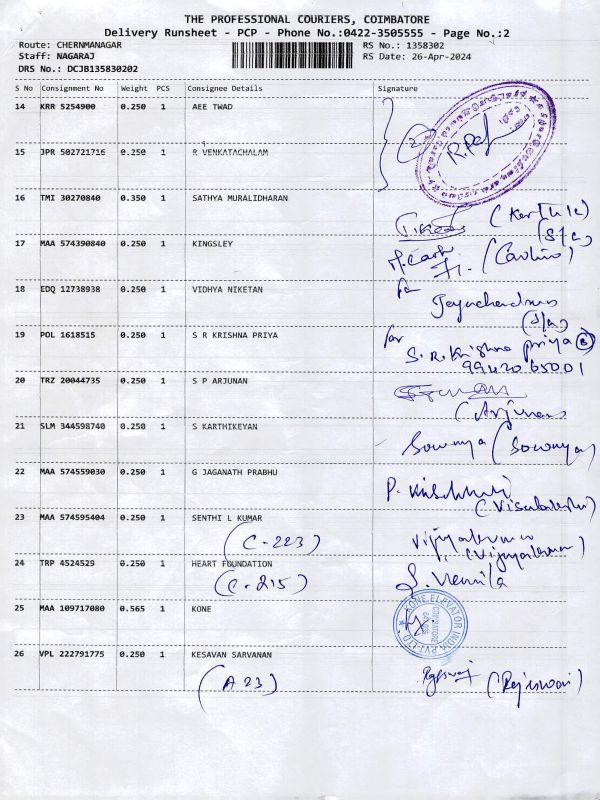 THE PROFESSIONAL COURIERS, COIMBATORE
Delivery Runsheet - PCP - Phone No.:0422-3505555 - Page No.:2
Route: CHERNMANAGAR RS No.: 1358302
Staff: NAGARAJ RS Date: 26-Apr-2024
DRS No.: DCJB135830202
S No Consignment No Weight PCS Consignee Details Signature
14 KRR 5254900 0.250 1 AEE TWAD
(2)
15 JPR 502721716 0.250 1 R VENKATACHALAM
16 TMI 30270840 0.350 1 SATHYA MURALIDHARAN
17 MAA 574390840 0.250 1 KINGSLEY
18 EDQ 12738938 0.250 1 VIDHYA NIKETAN
19 POL 1618515 0.250 1 S R KRISHNA PRIYA for S. R. Krishna Priya
9942065001
20 TRZ 20044735 0.250 1 S P ARJUNAN
(Arjunan
21 SLM 344598740 0.250 1 S KARTHIKEYAN Sowmya (Sowmya)
22 MAA 574559030 0.250 1 G JAGANATH PRABHU
23 MAA 574595404 0.250 1 SENTHI L KUMAR
(C-223)
24 TRP 4524529 0.250 1 HEART FOUNDATION
(C-215)
25 MAA 109717080 0.565 1 KONE
KONE ELEVATOR INDIA PVT. LTD.
COIMBATORE
26 VPL 222791775 0.250 1 KESAVAN SARVANAN
(A 23)